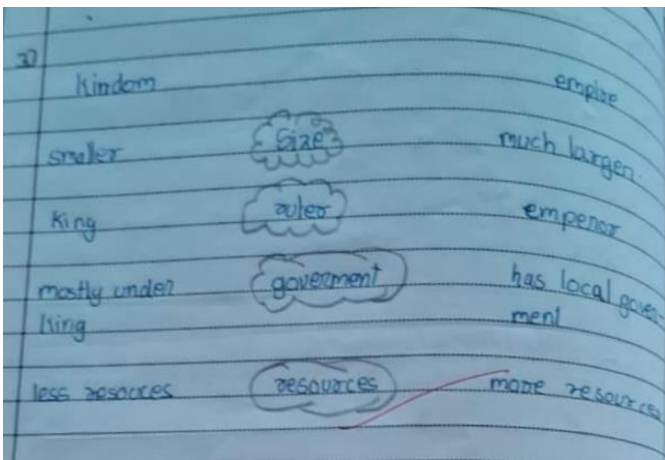 3)
Kindom empire
smaller size much larger.
King ruler emperor
mostly under goverment has local gover-
king ment
less resocces resources more resources